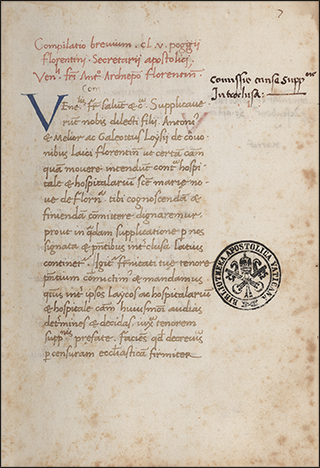 Compilatio brevium. cl. v. poggij
florentini Secretarij apostolici
Ven. fri Anto Archiepo florentin.
Comissio cause supp
Introclusa:
VEne. fr salute &c. Supplicave
runt nobis dilecti filij Antonius
& Melior ac Galeottus Loysij de covo
nibus Laici florentin ut certā cam
quā movere intendunt contra hospi
tale & hospitalariū sce marie no
ve de floren. tibi cognoscendā &
finiendā comitere dignaremur
prout in qdam supplicatione p nes
signata & pntibus introclusa latius
continet. fraternitati tue tenore
pntium comictim & mandamus
qtus inter ipsos Laycos ac hospitalariū
& hospitale cām huiusmodi audias
determines & decidas. iuxta tenorem
supp prefate. faciens qd decreveris
p censuram ecclesiasticā firmiter
BIBLIOTHECA APOSTOLICA VATICANA